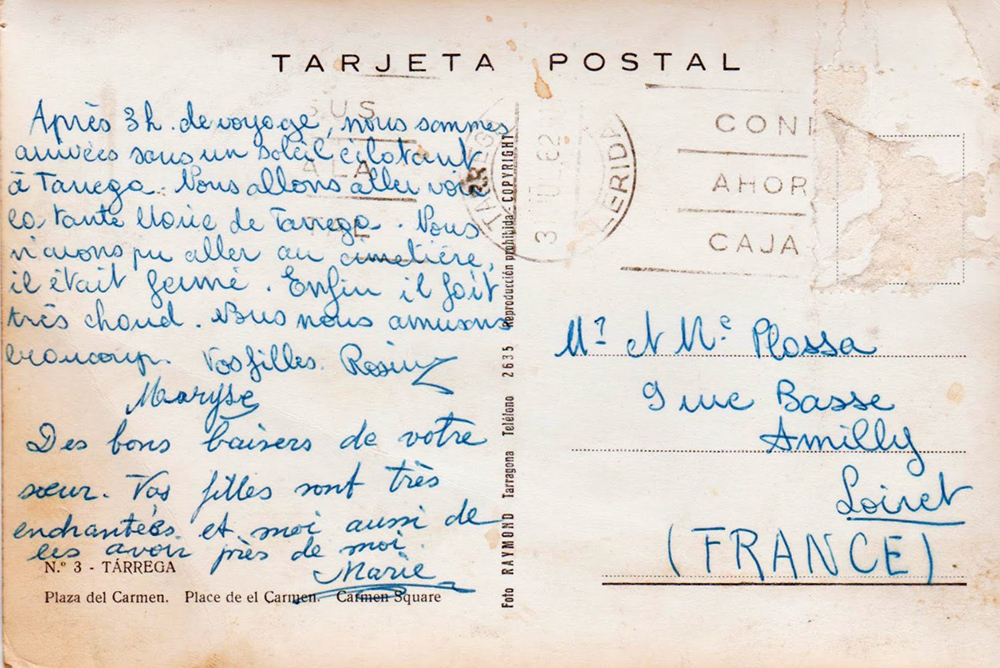 TARJETA POSTAL
Après 3h. de voyage, nous sommes
arrivées sous un soleil éclatant
à Tarrega. Nous allons aller voir
la tante Marie de Tarrega. Nous
n'avons pu aller au cimetière,
il était fermé. Enfin il fait
très chaud. Nous nous amusons
beaucoup. Vos filles. Rosine
Maryse
Des bons baisers de votre
sœur. Vos filles sont très
enchantées et moi aussi de
les avoir près de moi
Marie
N.º 3 - TÁRREGA
Plaza del Carmen. Place de el Carmen. Carmen Square
Foto RAYMOND Tarragona Teléfono 2635 Reproducción prohibida - COPYRIGHT
SUS
ALA
TARREGA
3 62
LERIDA
CONI
AHOR
CAJA
Mr et Me Plossa
9 rue Basse
Amilly
Loiret
(FRANCE)